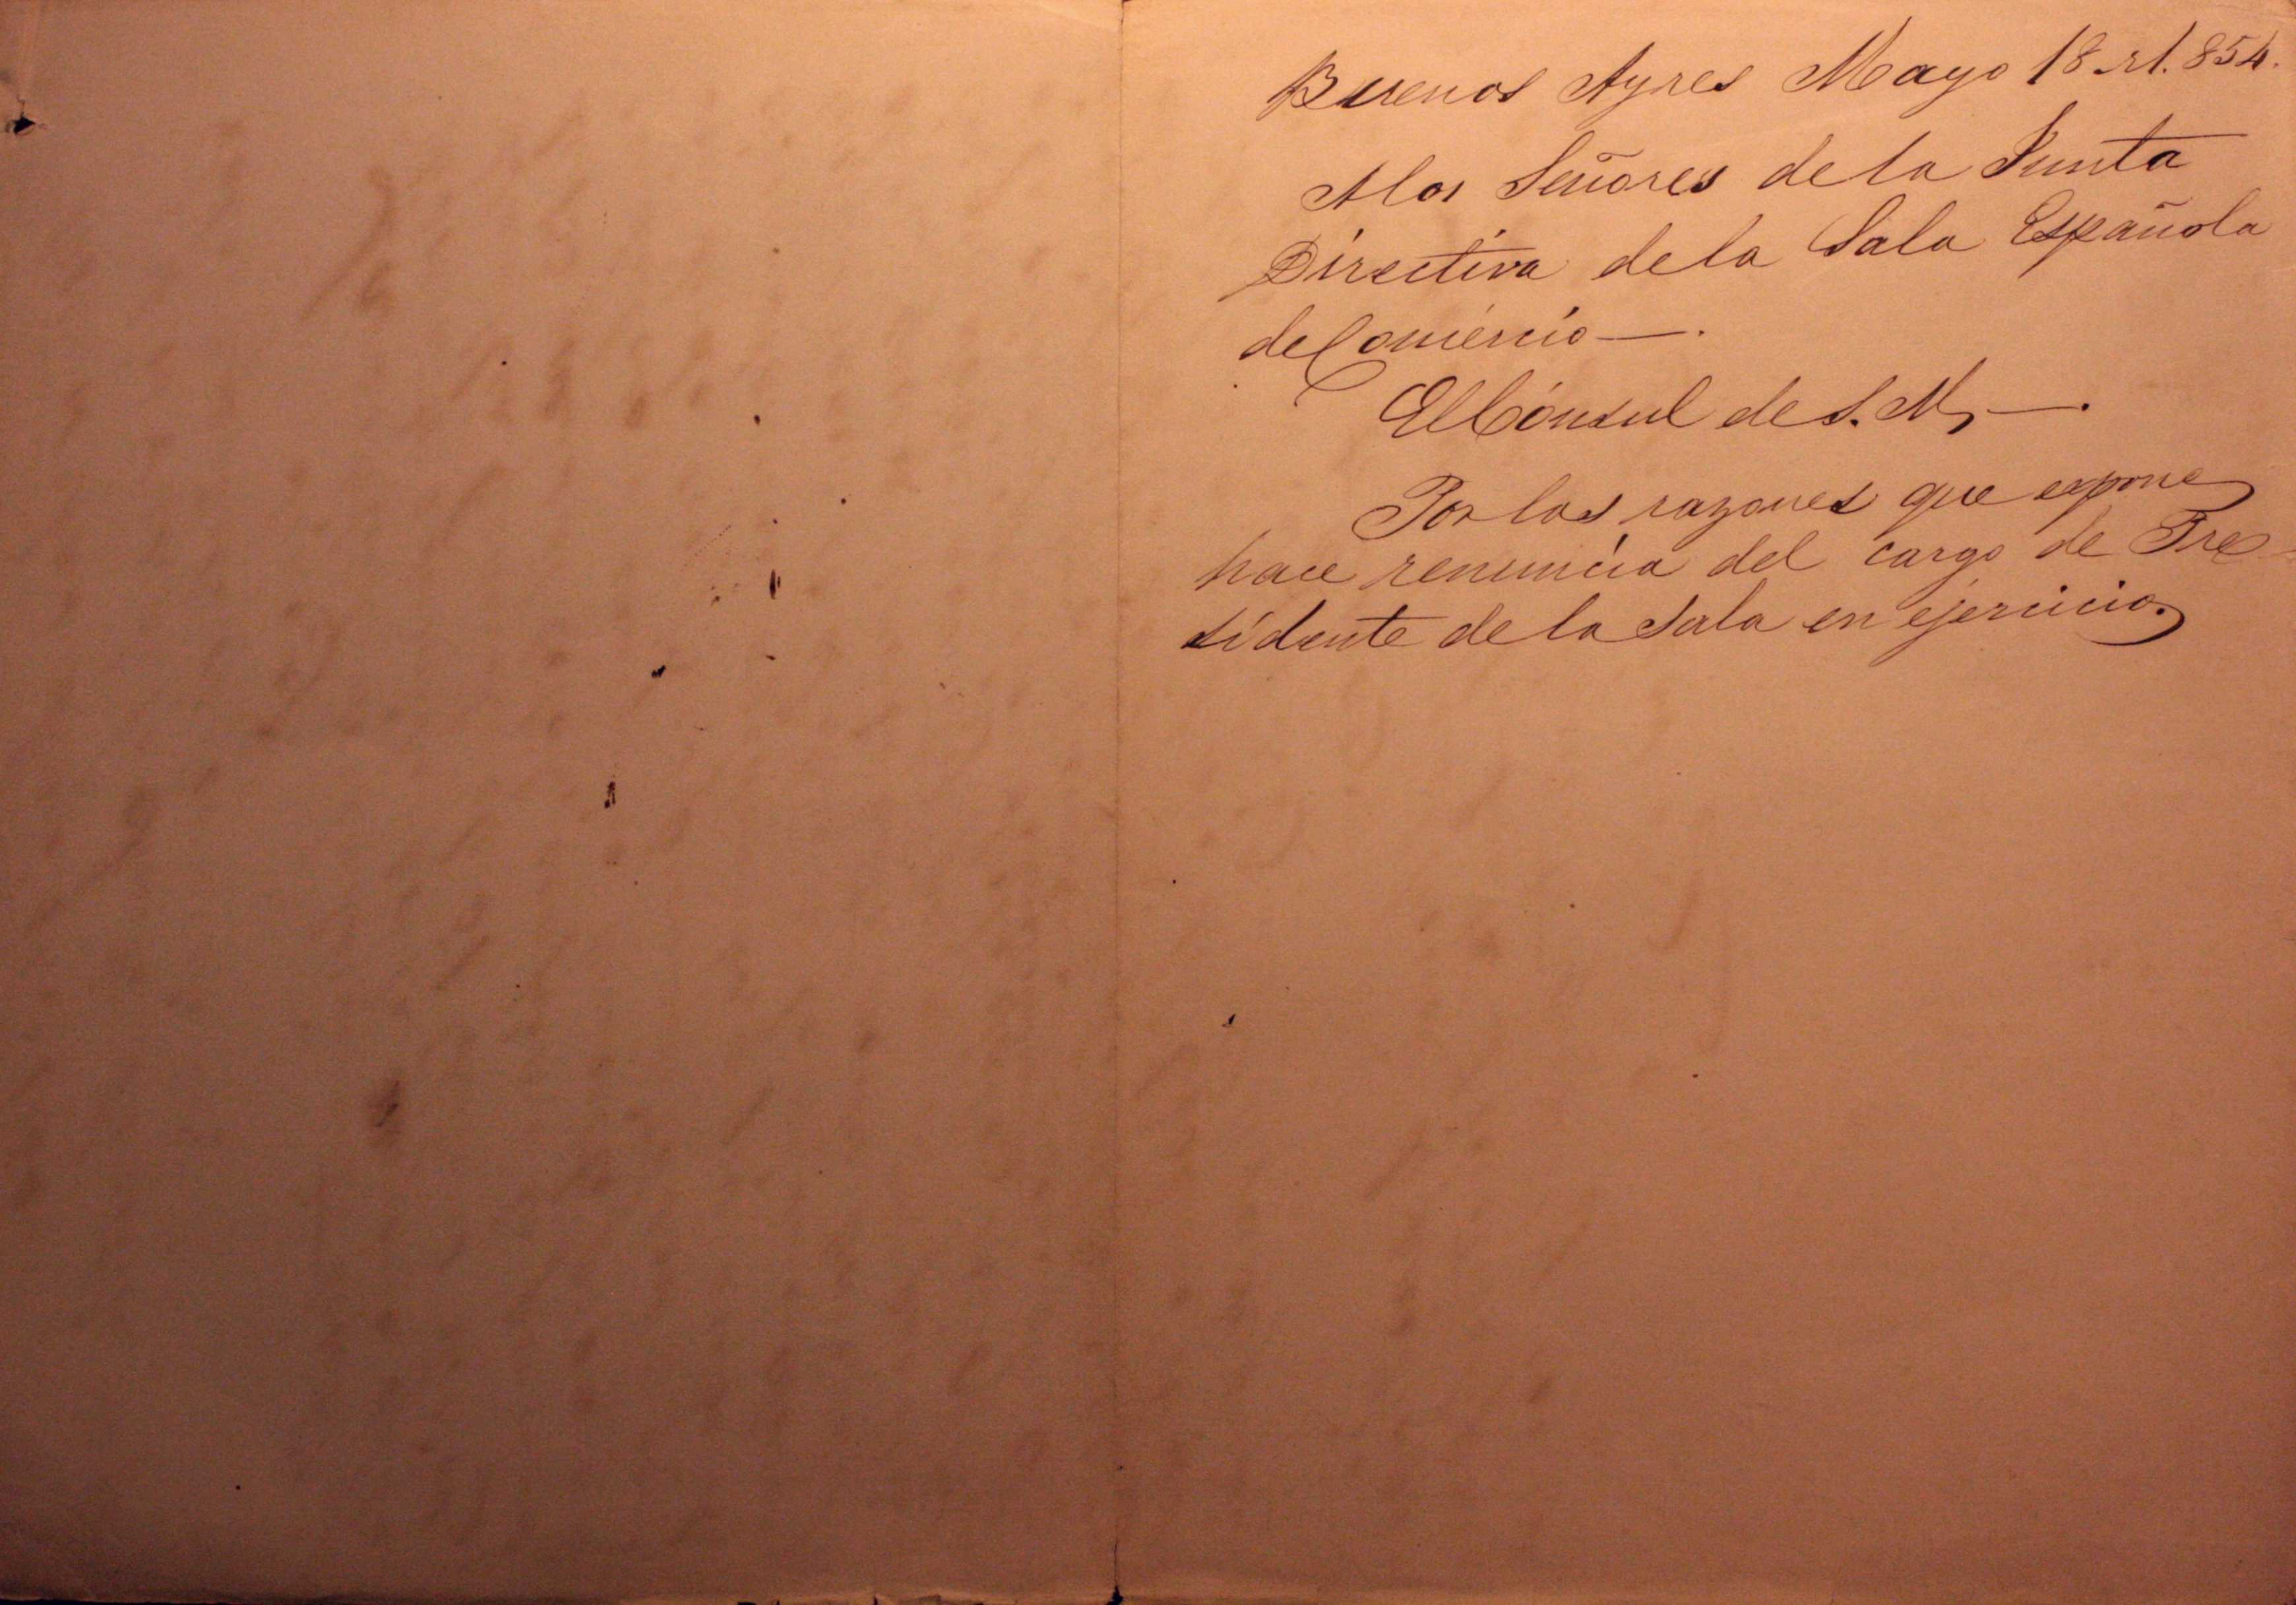 Buenos Ayres Mayo 18 de 1.854.
A los Señores de la Junta
Directiva de la Sala Española
de Comércio —.
El Cónsul de S. M. —.
Por las razones que expone
hace renuncia del cargo de Pre-
sidente de la Sala en ejercicio.